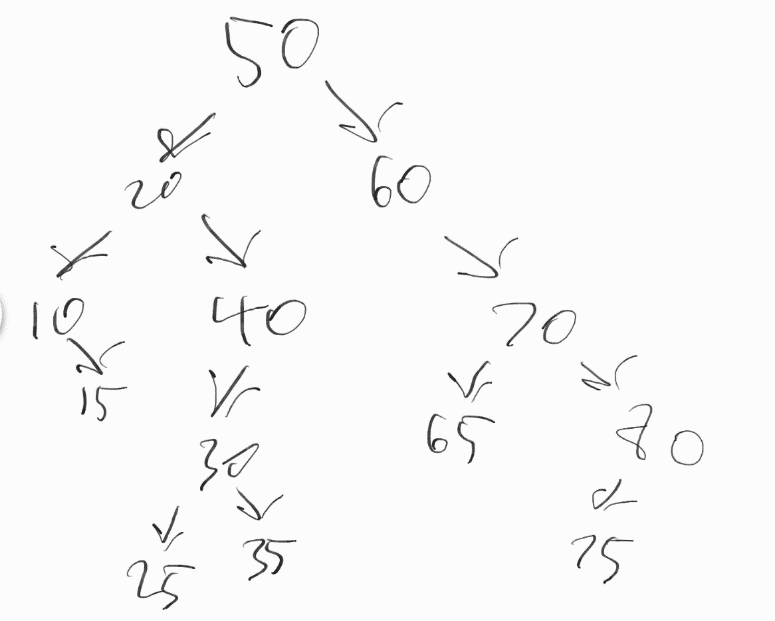 50
20 60
10 40 70
15 65 80
30
25 35 75